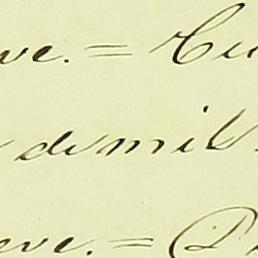 ve. = Cu
de mil
eve. = D